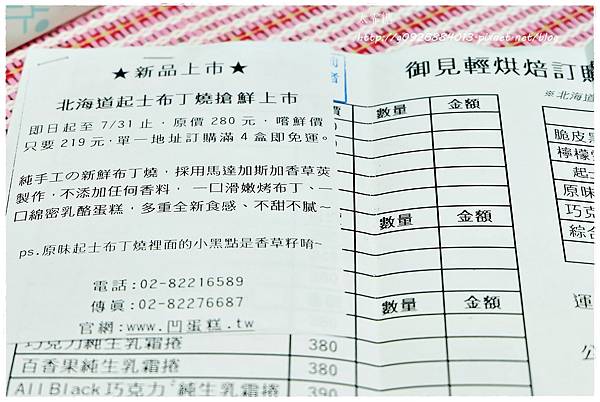 http://a0928884013.pixnet.net/blog
★新品上市★
北海道起士布丁燒搶鮮上市
即日起至 7/31 止,原價 280 元,嚐鮮價
只要 219 元,單一地址訂購滿 4 盒即免運。
純手工の新鮮布丁燒,採用馬達加斯加香草莢
製作,不添加任何香料, 一口滑嫩烤布丁、一
口綿密乳酪蛋糕,多重全新食感、不甜不膩~
ps.原味起士布丁燒裡面的小黑點是香草籽唷~
電話:02-82216589
傳眞:02-82276687
官網:www.凹蛋糕.tw
巧克力純生乳霜捲 380
百香果純生乳霜捲 380
All Black 巧克力 純生乳霜捲 390
御見輕烘焙訂購
※北海道
數量 金額
數量 金額
數量 金額
脆皮
檸檬
起士
原味
巧克
綜合
運
公